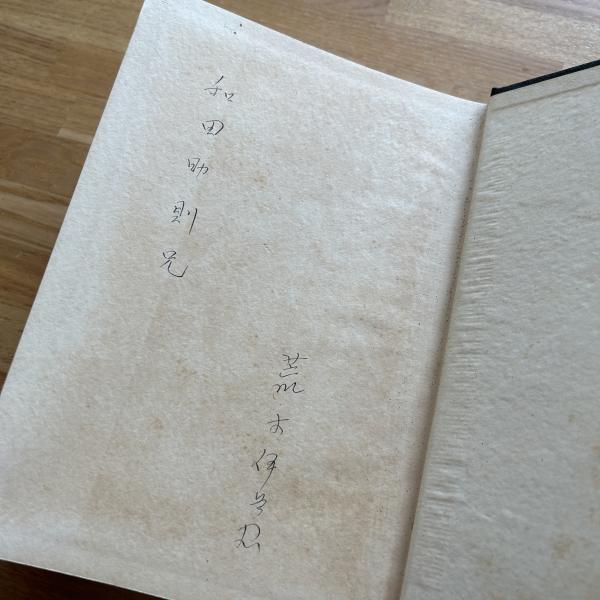 荒木伊兵衛
和田助則兄